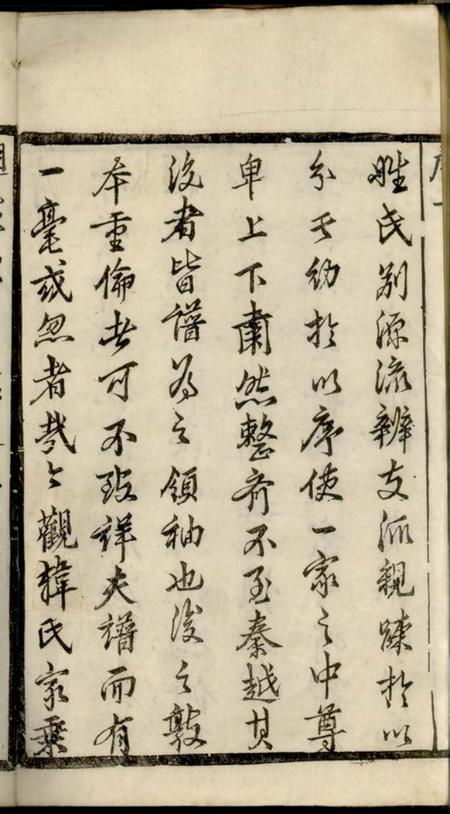 姓氏别源流辨支派親疎於以
分長幼於以序使一家之中尊
卑上下肅然整齊不至秦越其
後者皆譜為之領袖也後之敦
本重倫者可不致詳夫譜而有
一毫或忽者哉今觀韓氏家乘